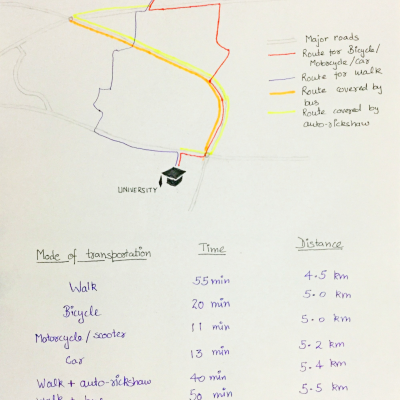 Major roads
Route for Bicycle/
Motorcycle/car
Route for walk
Route covered by
bus
Route covered by
auto-rickshaw
UNIVERSITY
Mode of transportation Time Distance
Walk 55 min 4.5 km
Bicycle 20 min 5.0 km
Motorcycle/scooter 11 min 5.0 km
Car 13 min 5.2 km
Walk + auto-rickshaw 40 min 5.4 km
Walk + bus 50 min 5.5 km